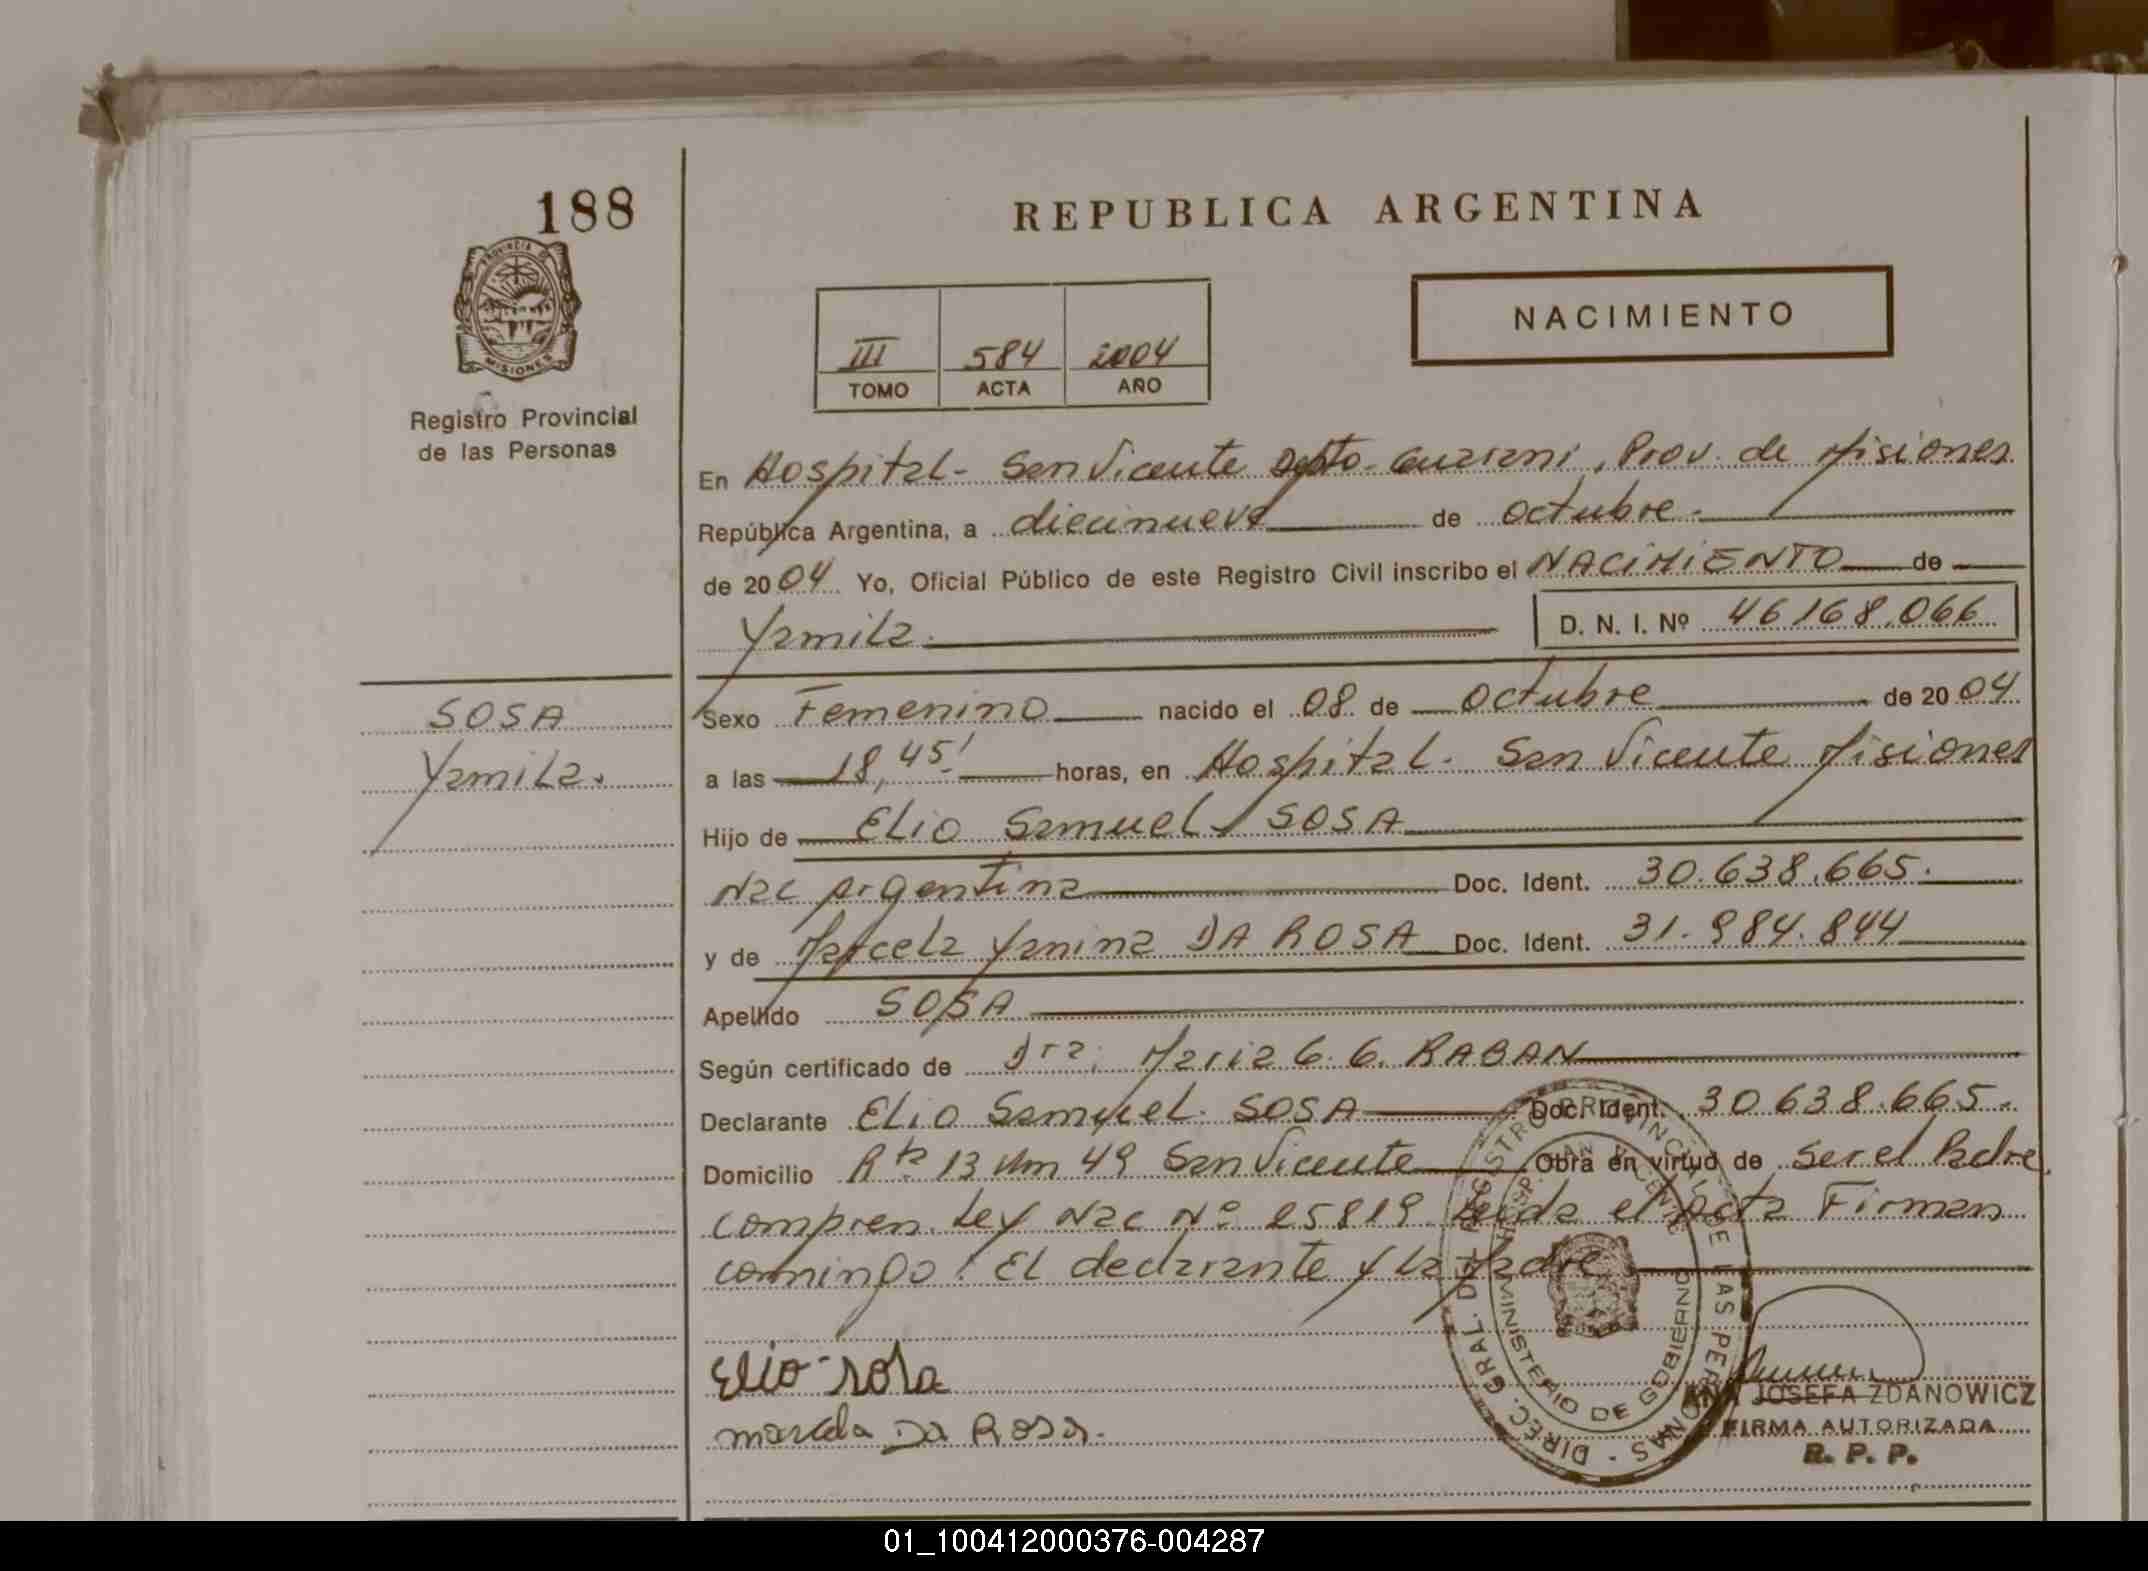 188
REPUBLICA ARGENTINA
PROVINCIA DE
MISIONES
Registro Provincial
de las Personas
III 584 2004
TOMO ACTA AÑO
NACIMIENTO
En Hospital - San Vicente Dpto. Guarani, Prov. de Misiones
República Argentina, a diecinueve de octubre.
de 2004 Yo, Oficial Público de este Registro Civil inscribo el NACIMIENTO de
Yamila.
D. N. I. Nº 46168.066
SOSA
Yamila.
Sexo Femenino nacido el 08 de octubre de 2004
a las 18,45' horas, en Hospital. San Vicente Misiones
Hijo de Elio Samuel SOSA
Nac Argentina Doc. Ident. 30.638.665.
y de Marcela Yanina DA ROSA Doc. Ident. 31.984.844
Apellido SOSA
Según certificado de Dra. Maria G. G. RABAN
Declarante Elio Samuel SOSA Doc. Ident. 30638.665.
Domicilio Rta 13 Km 49 San Vicente Obra en virtud de ser el Padre.
compren. Ley Nac Nº 25819 Leida el Acta Firman
comingo: El declarante y la Madre
Elio Sosa
marcela Da Rosa.
DIREC. GRAL. DEL REGISTRO PROVINCIAL DE LAS PERSONAS
MINISTERIO DE GOBIERNO
ANA JOSEFA ZDANOWICZ
FIRMA AUTORIZADA
R. P. P.
01_100412000376-004287